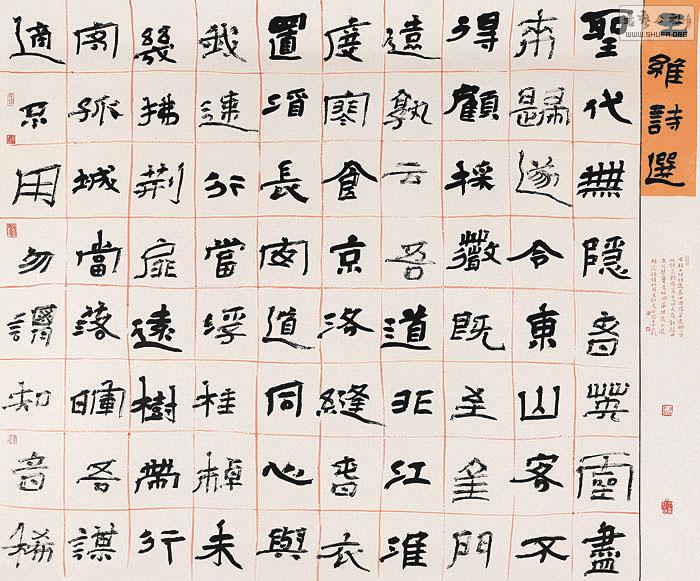 維詩選
聖代無隱者英靈盡
來歸遂令東山客不
得顧採薇既至金門
遠孰云吾道非江淮
度寒食京洛縫春衣
置酒長安道同心與
我違行當浮桂棹未
幾拂荊扉遠樹帶行
客孤城當落暉吾謀
適不用勿謂知音稀
WWW.SHUFA.ORG